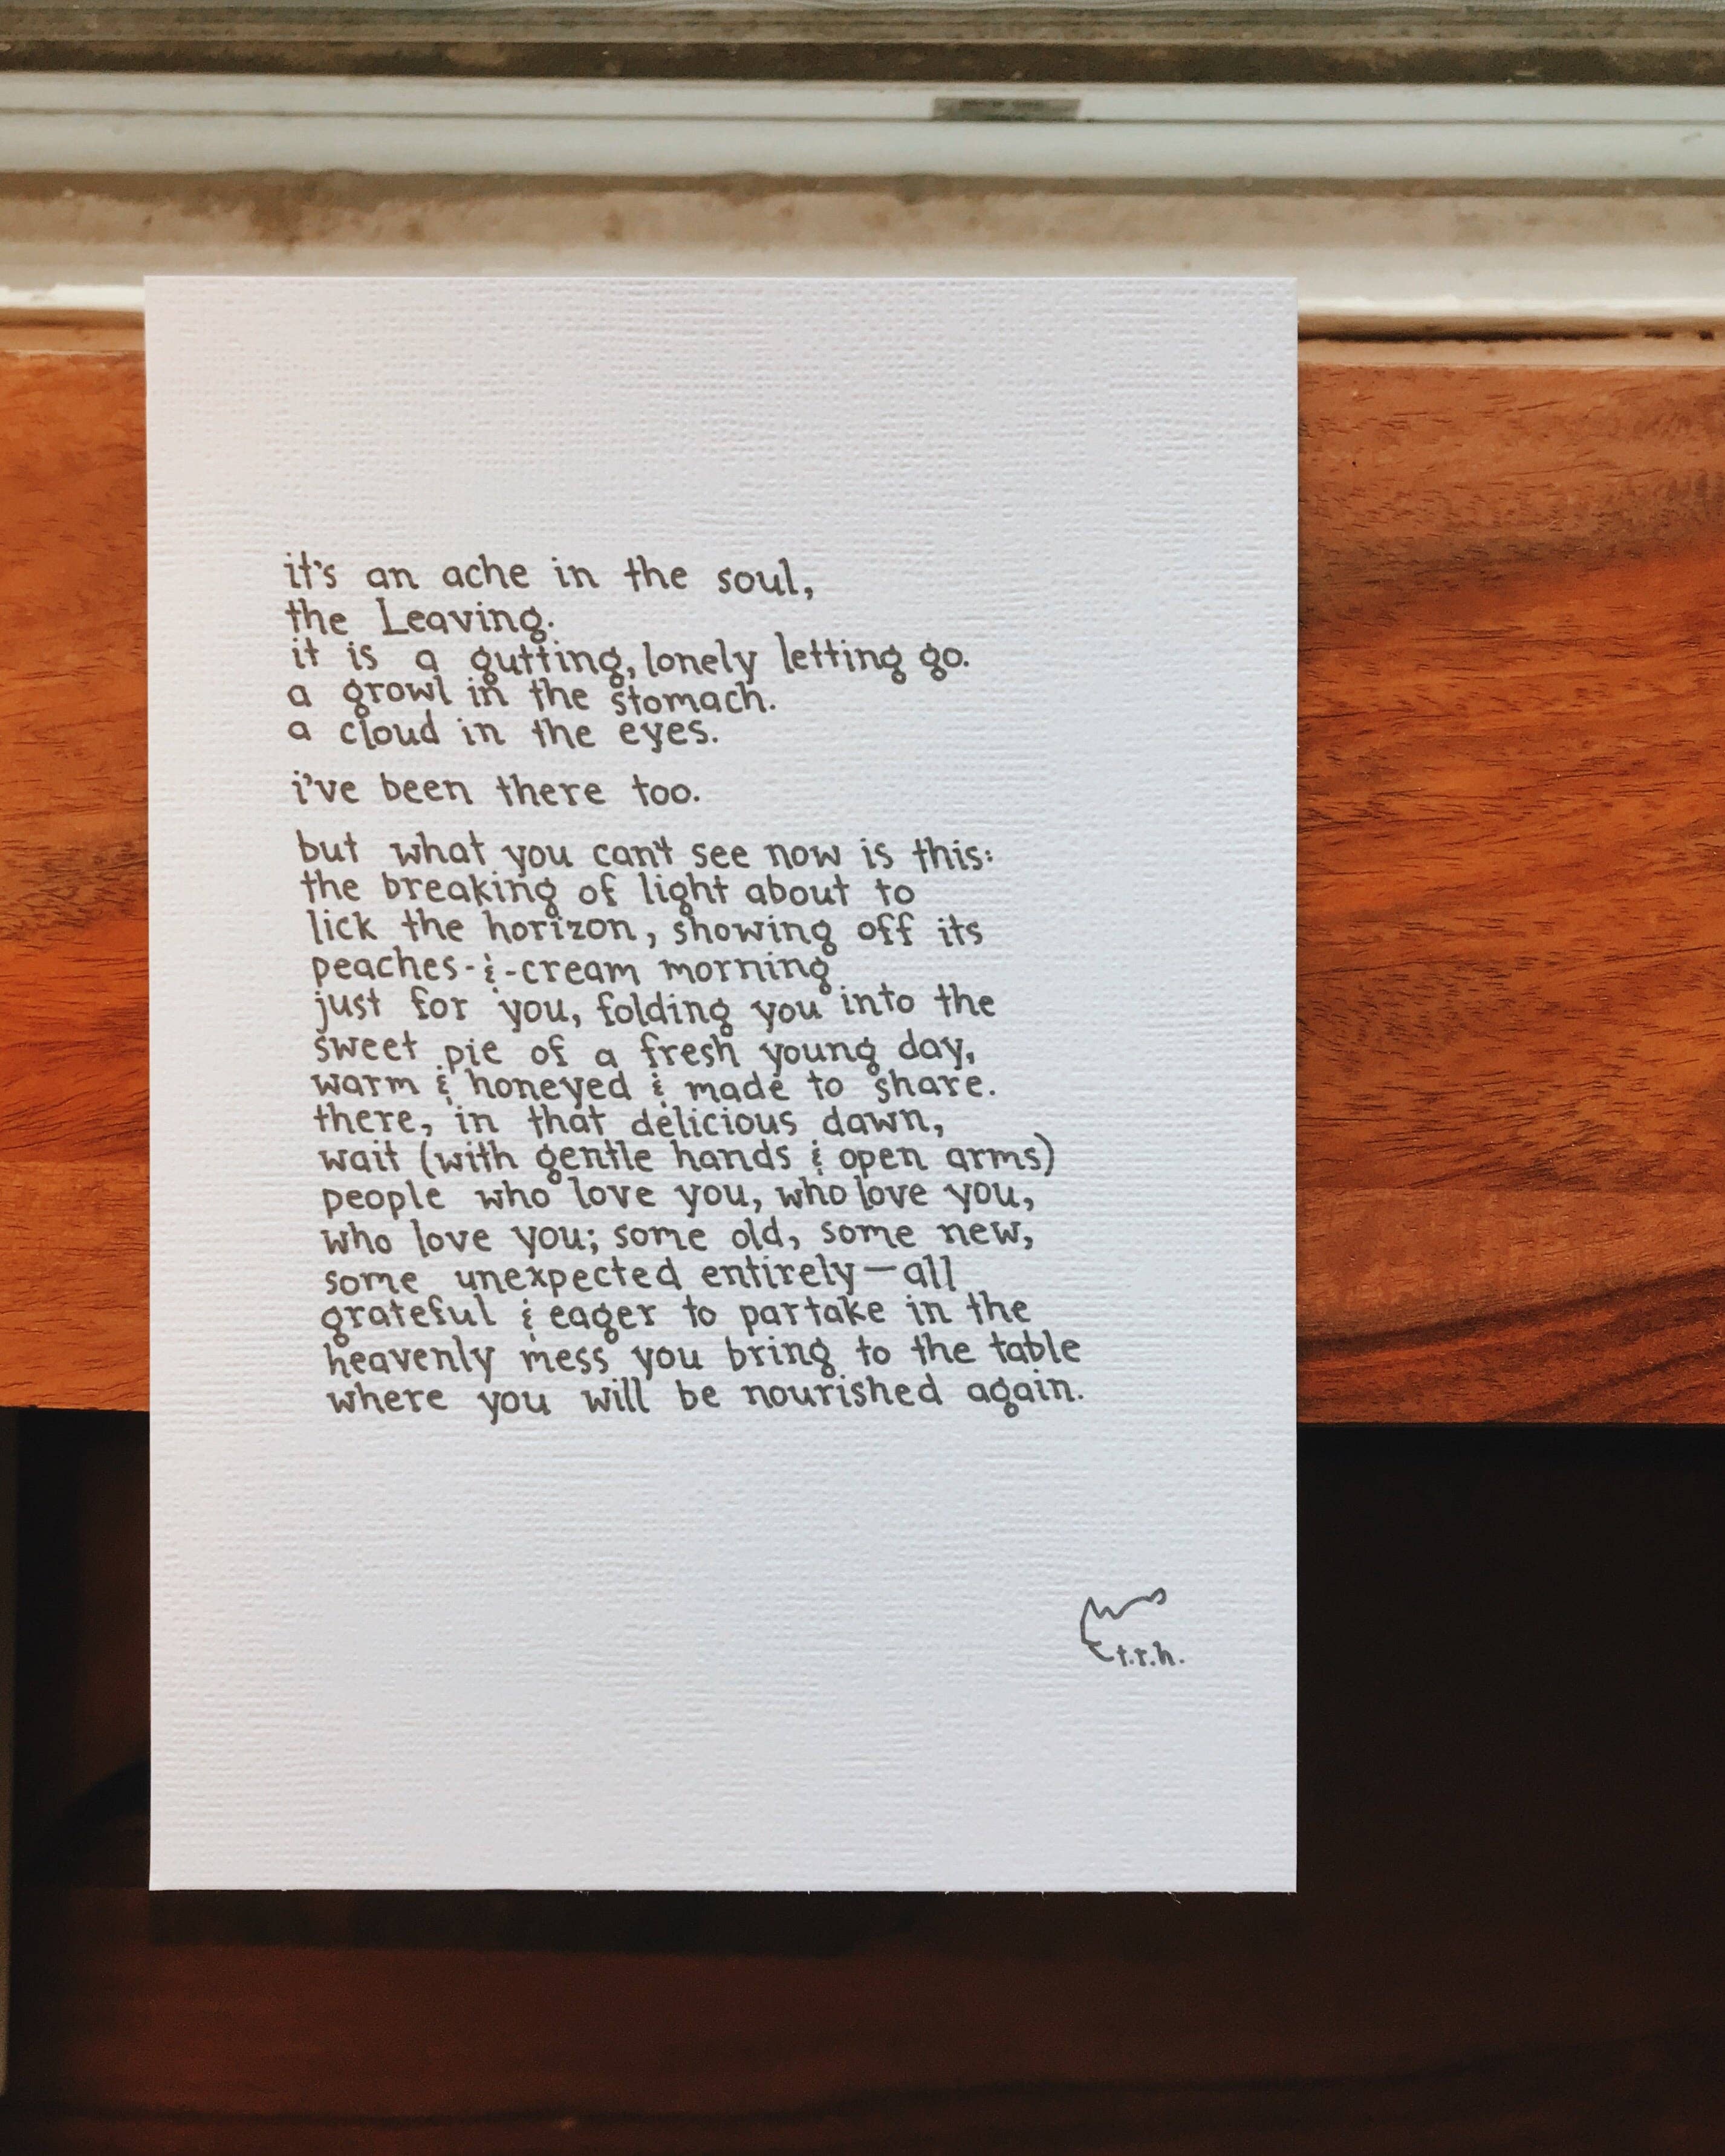 it's an ache in the soul,
the Leaving.
it is a gutting, lonely letting go.
a growl in the stomach.
a cloud in the eyes.
i've been there too.
but what you can't see now is this:
the breaking of light about to
lick the horizon, showing off its
peaches-&-cream morning
just for you, folding you into the
sweet pie of a fresh young day,
warm & honeyed & made to share.
there, in that delicious dawn,
wait (with gentle hands & open arms)
people who love you, who love you,
who love you; some old, some new,
some unexpected entirely—all
grateful & eager to partake in the
heavenly mess you bring to the table
where you will be nourished again.
t.r.h.